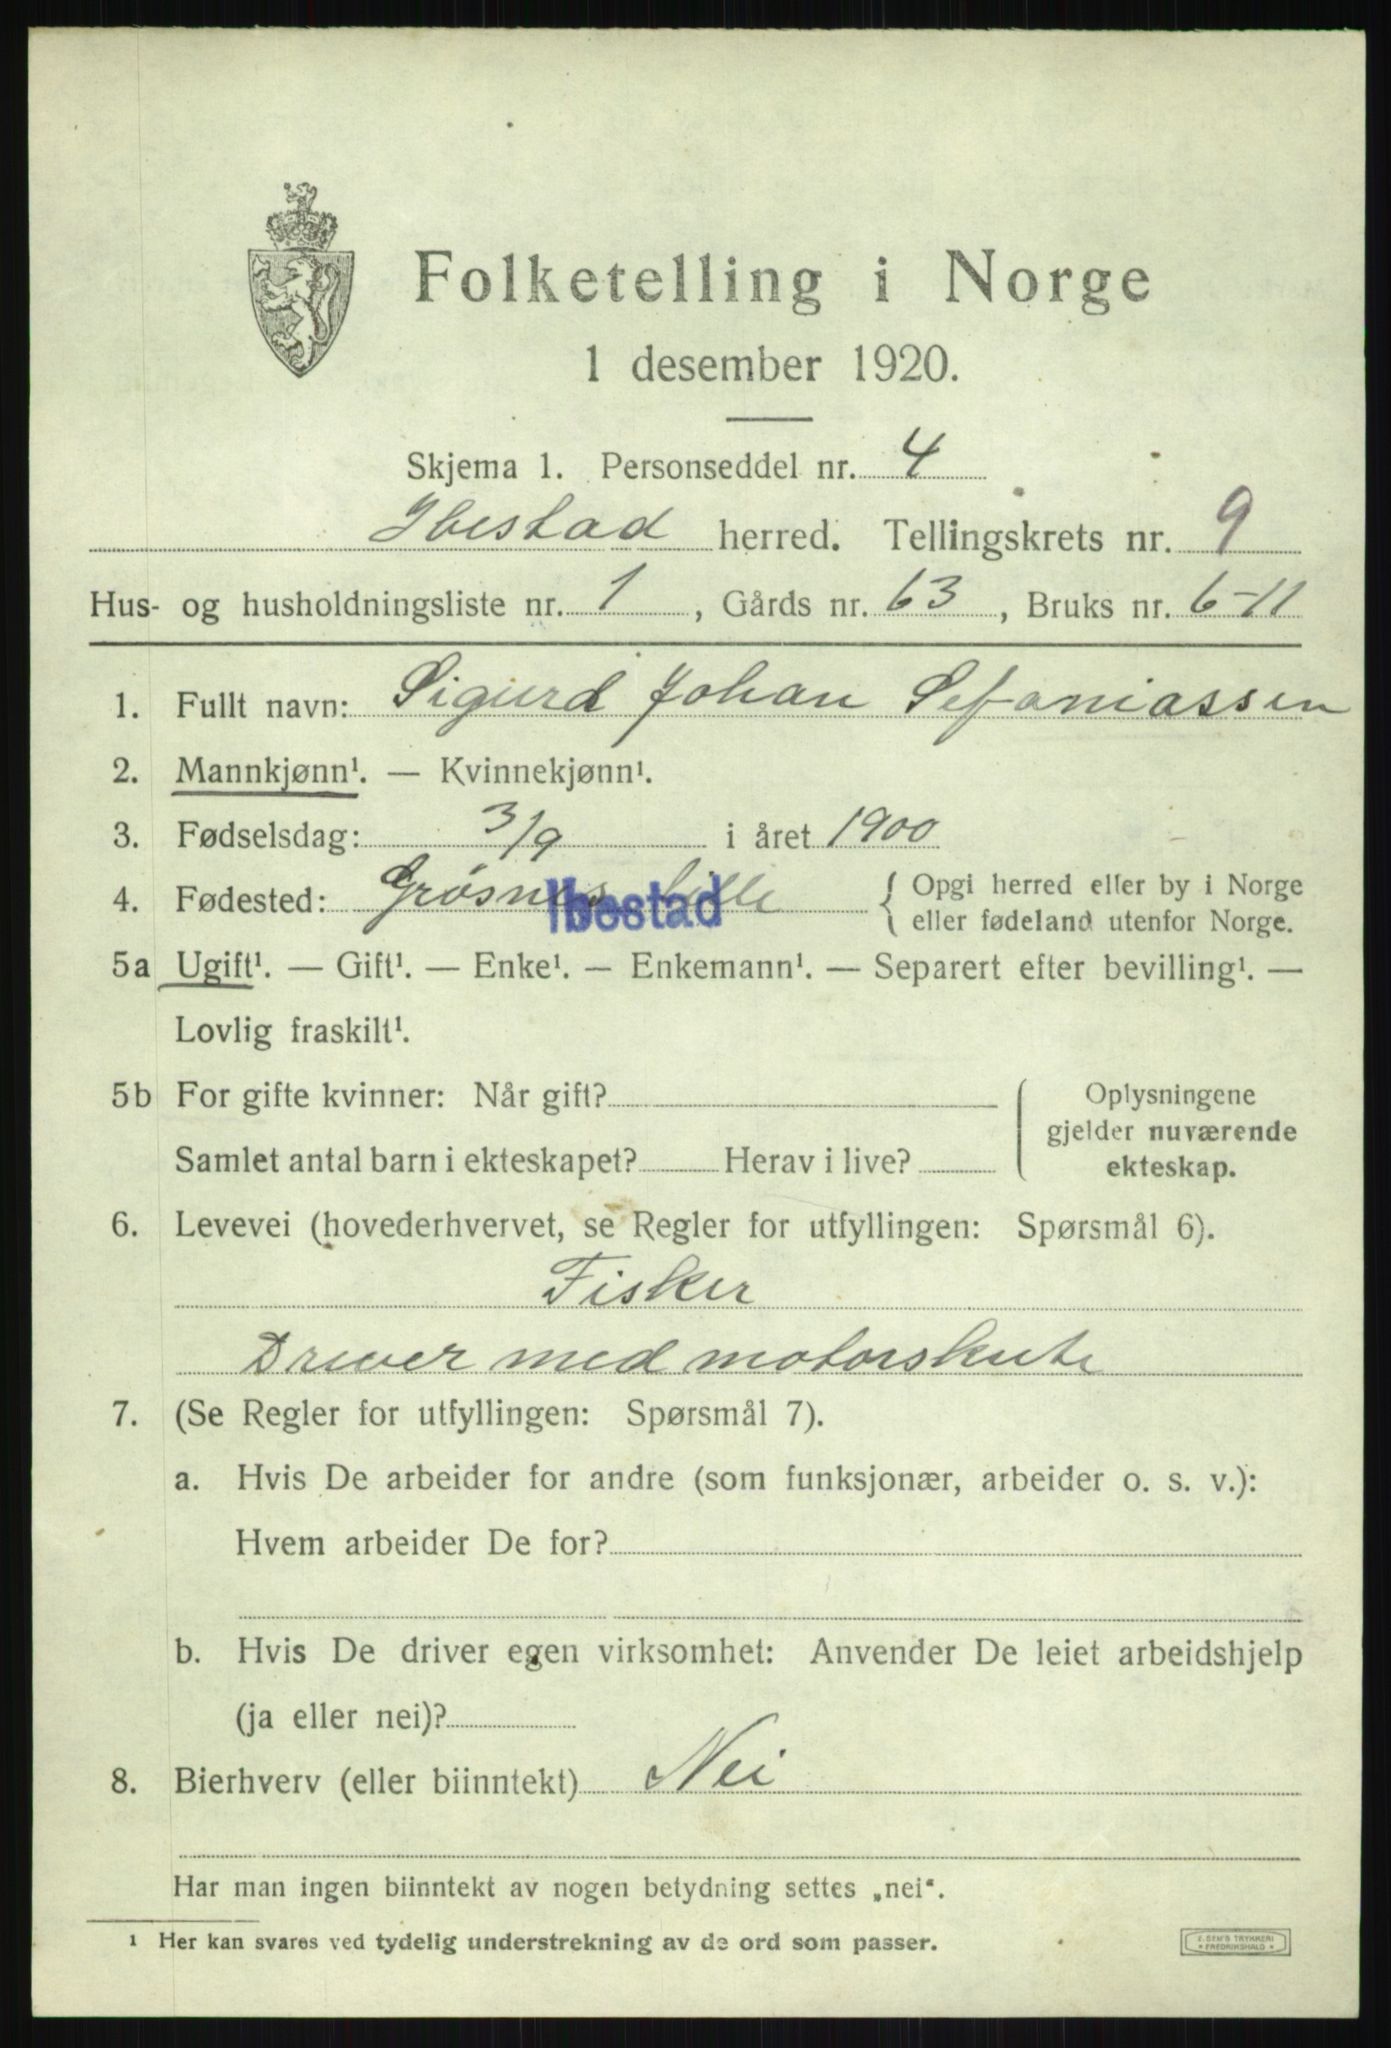 Folketelling i Norge
1 desember 1920.
Skjema 1. Personseddel nr. 4
Ibestad herred. Tellingskrets nr. 9
Hus- og husholdningsliste nr. 1, Gårds nr. 63, Bruks nr. 6-11
1. Fullt navn: Sigurd Johan Sefaniassen
2. Mannkjønn¹. — Kvinnekjønn¹.
3. Fødselsdag: 3/9 i året 1900
4. Fødested: Grøsnes lille { Opgi herred eller by i Norge
Ibestad eller fødeland utenfor Norge.
5a Ugift¹. — Gift¹. — Enke¹. — Enkemann¹. — Separert efter bevilling¹. —
Lovlig fraskilt¹.
5b For gifte kvinner: Når gift? Oplysningene
gjelder nuværende
Samlet antal barn i ekteskapet? Herav i live? ekteskap.
6. Levevei (hovederhvervet, se Regler for utfyllingen: Spørsmål 6).
Fisker
Driver med motorskute
7. (Se Regler for utfyllingen: Spørsmål 7).
a. Hvis De arbeider for andre (som funksjonær, arbeider o. s. v.):
Hvem arbeider De for?
b. Hvis De driver egen virksomhet: Anvender De leiet arbeidshjelp
(ja eller nei)?
8. Bierhverv (eller biinntekt) Nei
Har man ingen biinntekt av nogen betydning settes „nei“.
¹ Her kan svares ved tydelig understrekning av de ord som passer.
E. SEM'S TRYKKERI
* FREDRIKSHALD *